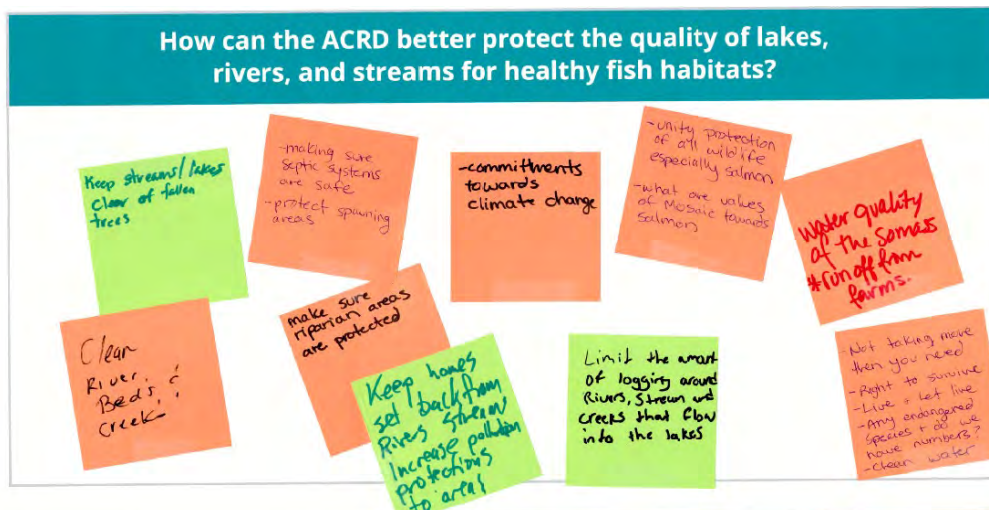 How can the ACRD better protect the quality of lakes,
rivers, and streams for healthy fish habitats?
Keep streams/lakes
clear of fallen
trees
-making sure
septic systems
are safe
-protect spawning
areas
-commitments
towards
climate change
-unity protection
of all wildlife
especially salmon
-what are values
of Mosaic towards
salmon
Water quality
of the Somass
*runoff from
farms.
Clean
River,
Beds, &
creeks
make sure
riparian areas
are protected
Keep homes
set back from
Rivers Stream
Increase pollution
protections
to areas
Limit the amart
of logging around
Rivers, Stream and
creeks that flow
into the lakes
-Not taking more
then you need
-Right to survive
-Live + Let live
-Any endangered
species + do we
have numbers?
-Clean water